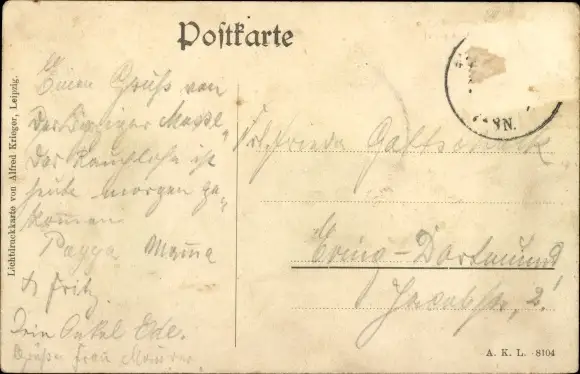 Postkarte
Einen Gruß von
der Leipziger Messe,
der ist
heute morgen ge„
kommen.
Pappa Mama
& Fritz
Dein Onkel Ede.
Grüße Frau
Frieda Gottschalk
Eving-Dortmund
Jacobstr. 2.
Lichtdruckkarte von Alfred Krieger, Leipzig.
A. K. L. 8104